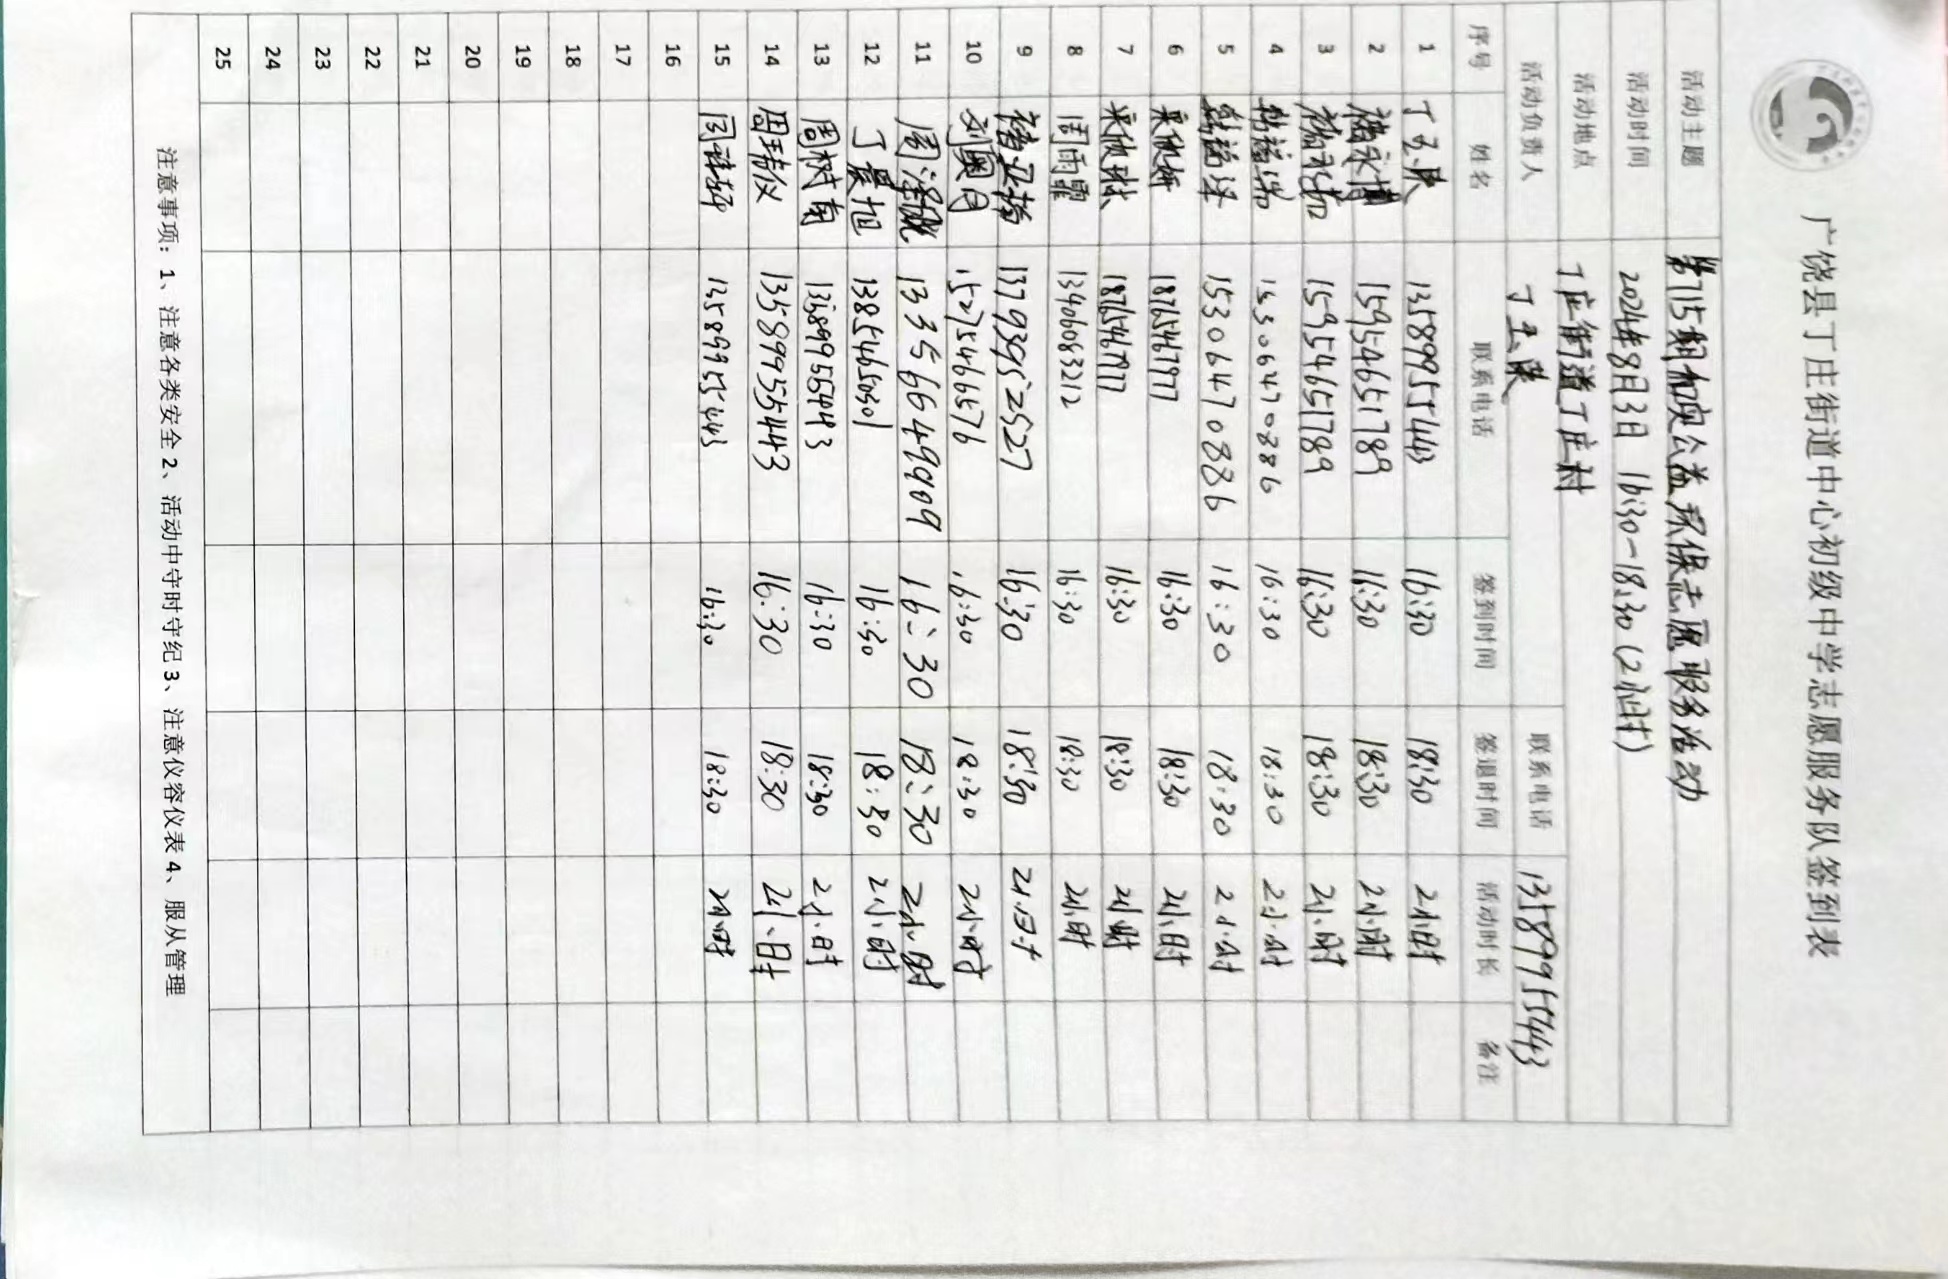 广饶县丁庄街道中心初级中学志愿服务队签到表
活动主题 第715期加奕公益环保志愿服务活动
活动时间 2024年8月3日 16:30-18:30(2小时)
活动地点 丁庄街道丁庄村
活动负责人 丁玉洪 联系电话 13589955443
序号 姓名 联系电话 签到时间 签退时间 活动时长 备注
1 丁玉洪 13589955443 16:30 18:30 2小时
2 褚永博 15954651789 16:30 18:30 2小时
3 15954651789 16:30 18:30 2小时
4 韩诺 15306470886 16:30 18:30 2小时
5 韩诺泽 15306470886 16:30 18:30 2小时
6 18765467977 16:30 18:30 2小时
7 18765467977 16:30 18:30 2小时
8 周雨霏 13406083212 16:30 18:30 2小时
9 13793952527 16:30 18:30 2小时
10 刘奥 15275466676 16:30 18:30 2小时
11 周泽 13356649909 16:30 18:30 2小时
12 丁景旭 13854650601 16:30 18:30 2小时
13 周树南 16:30 18:30 2小时
14 周琇仪 13589955443 16:30 18:30 2小时
15 13589955443 16:30 18:30 2小时
16
17
18
19
20
21
22
23
24
25
注意事项：1、注意各类安全 2、活动中守时守纪 3、注意仪容仪表 4、服从管理